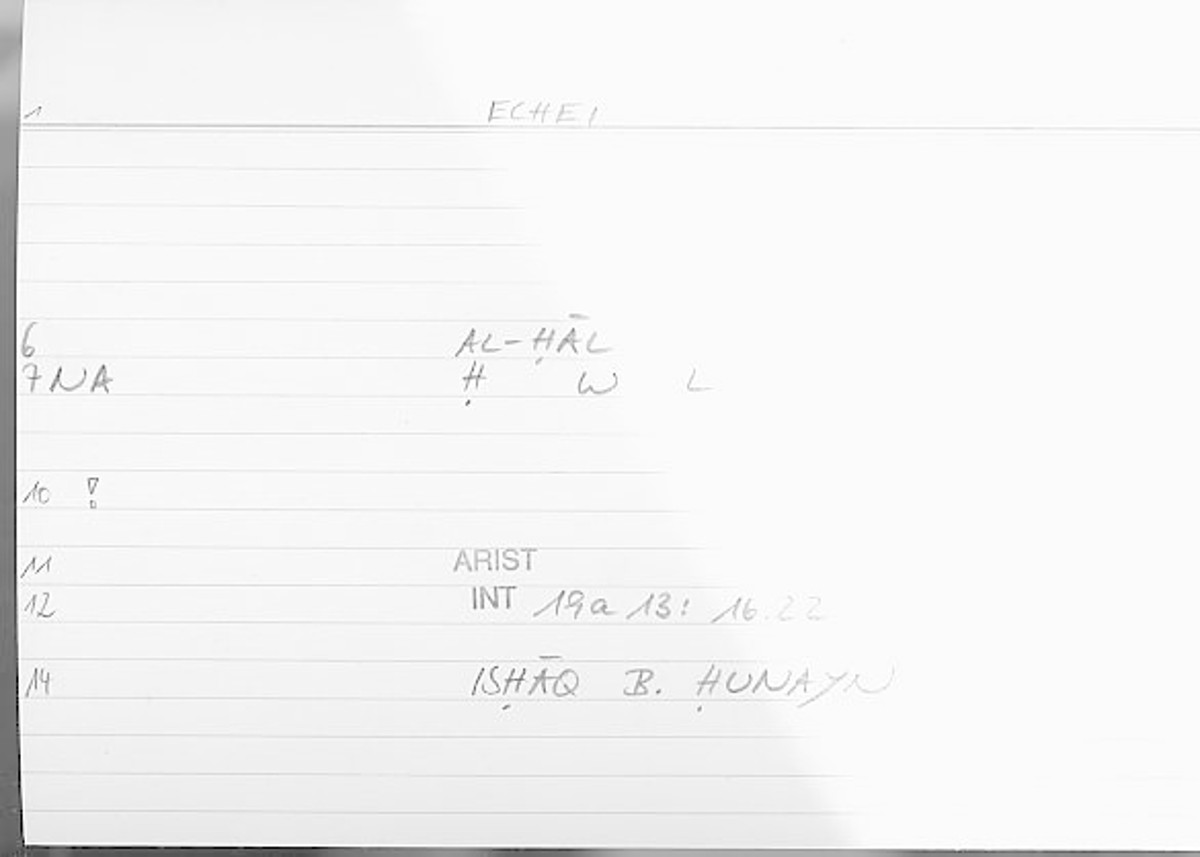 1 ECHEI
6 AL-ḤĀL
7NA Ḥ W L
10 !
11 ARIST
12 INT 19a 13: 16.22
14 ISḤĀQ B. ḤUNAYN